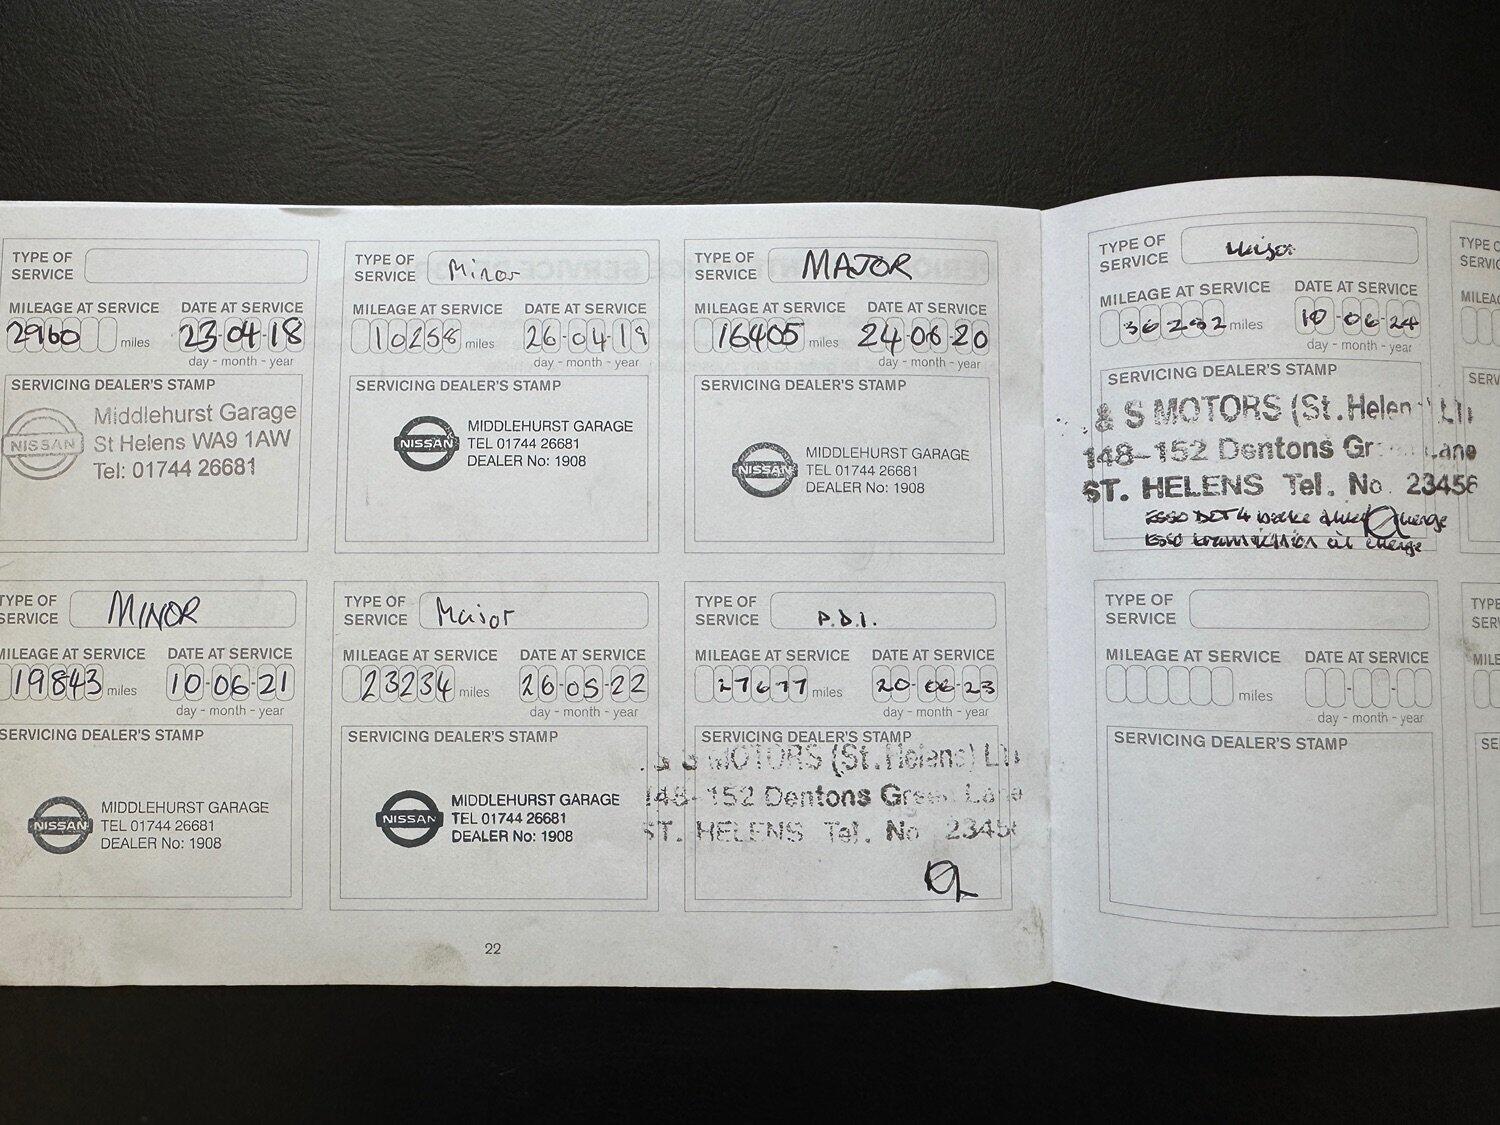 TYPE OF SERVICE
MILEAGE AT SERVICE DATE AT SERVICE
2960 miles 23-04-18
day - month - year
SERVICING DEALER'S STAMP
NISSAN
Middlehurst Garage
St Helens WA9 1AW
Tel: 01744 26681
TYPE OF SERVICE Minor
MILEAGE AT SERVICE DATE AT SERVICE
10258 miles 26-04-19
day - month - year
SERVICING DEALER'S STAMP
NISSAN
MIDDLEHURST GARAGE
TEL 01744 26681
DEALER No: 1908
TYPE OF SERVICE MAJOR
MILEAGE AT SERVICE DATE AT SERVICE
16405 miles 24-06-20
day - month - year
SERVICING DEALER'S STAMP
NISSAN
MIDDLEHURST GARAGE
TEL 01744 26681
DEALER No: 1908
TYPE OF SERVICE MINOR
MILEAGE AT SERVICE DATE AT SERVICE
19843 miles 10-06-21
day - month - year
SERVICING DEALER'S STAMP
NISSAN
MIDDLEHURST GARAGE
TEL 01744 26681
DEALER No: 1908
TYPE OF SERVICE Major
MILEAGE AT SERVICE DATE AT SERVICE
23234 miles 26-05-22
day - month - year
SERVICING DEALER'S STAMP
NISSAN
MIDDLEHURST GARAGE
TEL 01744 26681
DEALER No: 1908
TYPE OF SERVICE P.D.I.
MILEAGE AT SERVICE DATE AT SERVICE
27677 miles 20-06-23
day - month - year
SERVICING DEALER'S STAMP
& S MOTORS (St. Helens)
148-152 Dentons Green Lane
ST. HELENS Tel. No 23456
22
TYPE OF SERVICE
MILEAGE AT SERVICE DATE AT SERVICE
36292 miles 10-06-24
day - month - year
SERVICING DEALER'S STAMP
& S MOTORS (St. Helen
148-152 Dentons Gr Lane
ST. HELENS Tel. No. 23456
ESSO DOT 4 brake change
ESSO transmission oil change
TYPE OF SERVICE
MILEAGE AT SERVICE DATE AT SERVICE
miles
day - month - year
SERVICING DEALER'S STAMP